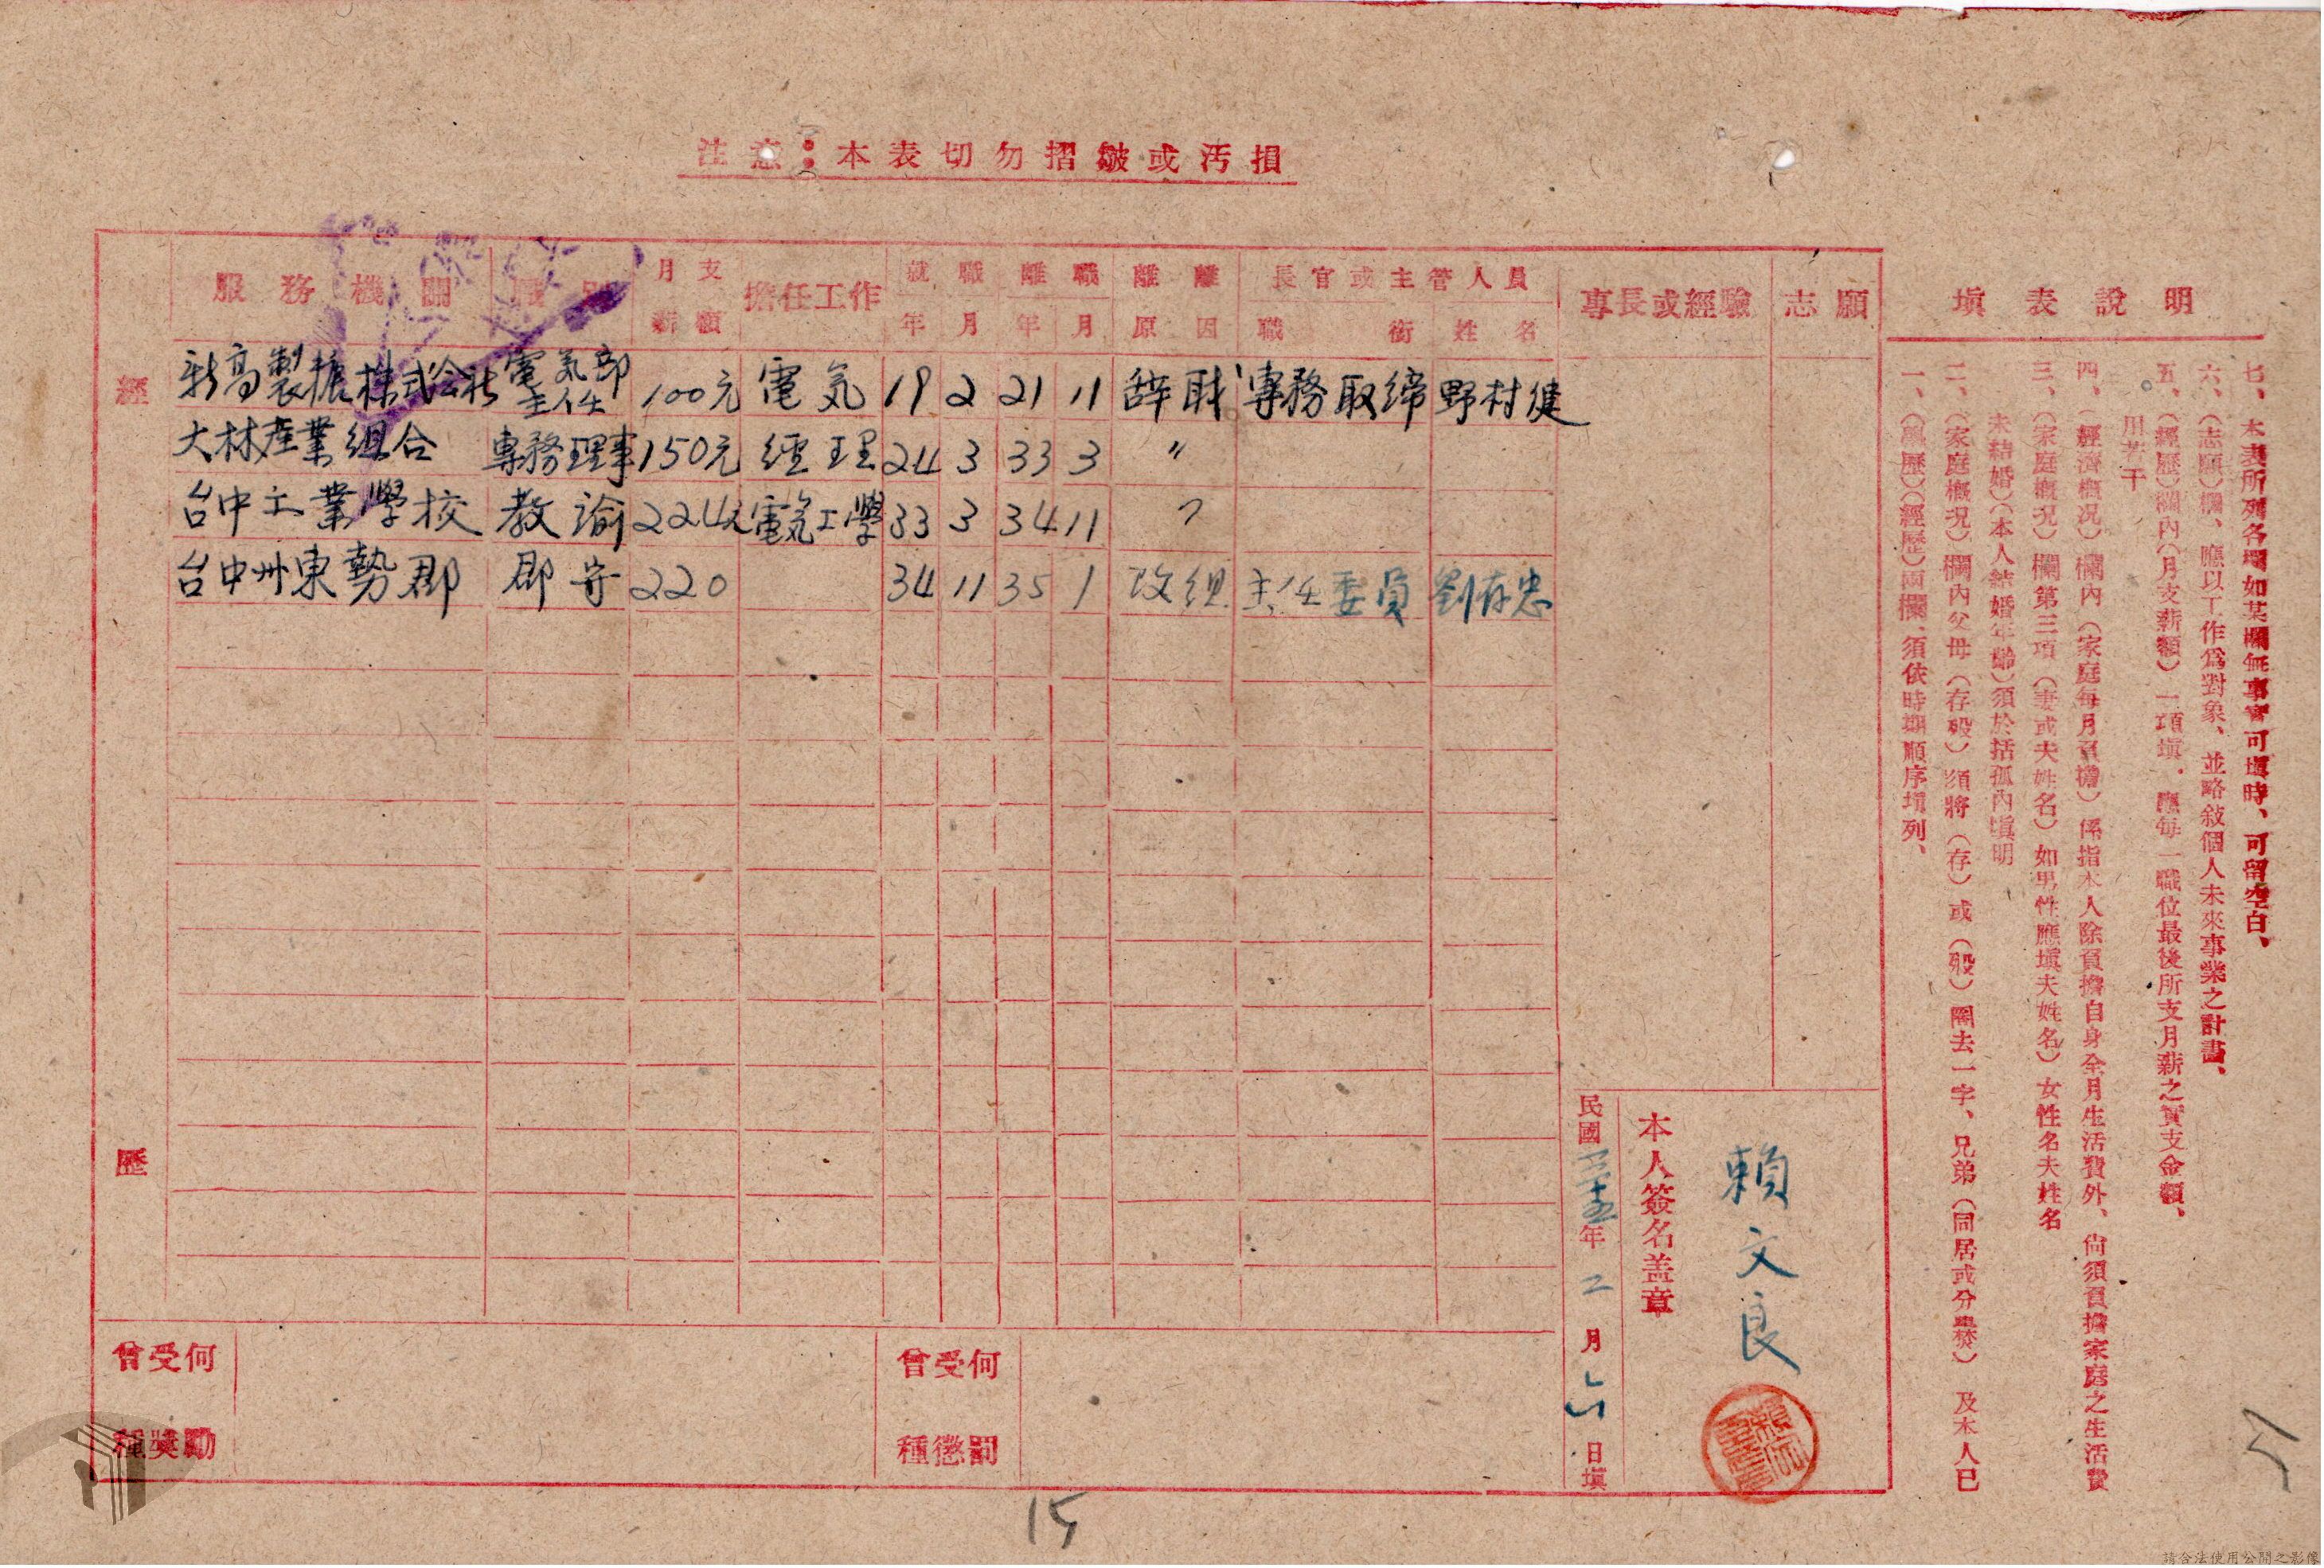 注意：本表切勿摺皺或汚損
經歷
服務機關 職別 月支薪額 擔任工作 就職年月 離職年月 離離原因 長官或主管人員 職銜 姓名 專長或經驗 志願
新高製糖株式会社 電気部主任 100元 電気 19 2 21 11 辞職 専務取締 野村健
大林産業組合 専務理事 150元 經理 24 3 33 3 〃
台中工業學校 教諭 224元 電気工學 33 3 34 11 〃
台中州東勢郡 郡守 220 34 11 35 1 改組 主任委員 劉存忠
曾受何種獎勵
曾受何種懲罰
本人簽名盖章
賴文良
民國三十五年二月六日塡
塡表說明
一、（學歷）（經歷）兩欄，須依時期順序塡列、
二、（家庭概況）欄內父母（存歿）須將（存）或（歿）圈去一字、兄弟（同居或分爨）及本人已
未結婚）（本人結婚年齡）須於括弧內塡明
三、（家庭概況）欄第三項（妻或夫姓名）如男性應塡夫姓名）女性名夫姓名
四、（經濟概況）欄內（家庭每月負擔）係指本人除負擔自身全月生活費外、尙須負擔家庭之生活費
用若干
五、（經歷）欄內（月支薪額）一項塡．應每一職位最後所支月薪之實支金額、
六、（志願）欄、應以工作爲對象、並略敍個人未來事業之計畵、
七、本表所列各欄如某欄無事實可塡時、可留空白、
15
請合法使用公開之影像